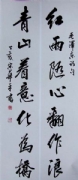 毛泽东诗句
红雨随心翻作浪
青山着意化为桥